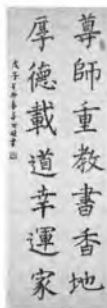 尊師重教書香地
厚德載道幸運家